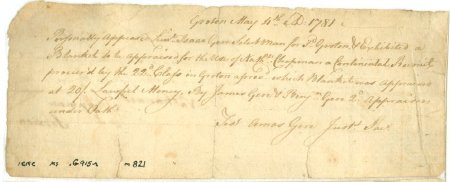 Groton May 4th AD. 1781
Personally Appeared Lieut. Isaac Gere Select Man for sd. Groton & Exhibited a
Blanket to be Appraised for the Use of Nathn. Chapman a Continental Recruit
procur'd by the 22d. Class in Groton aforesd. which Blanket was Appraised
at 20/. Lawful Money. By James Gere & Benjn. Gere 2d. Appraisers
under Oath.
Test Amos Gere Just. Pac.
Ms 6915a m821